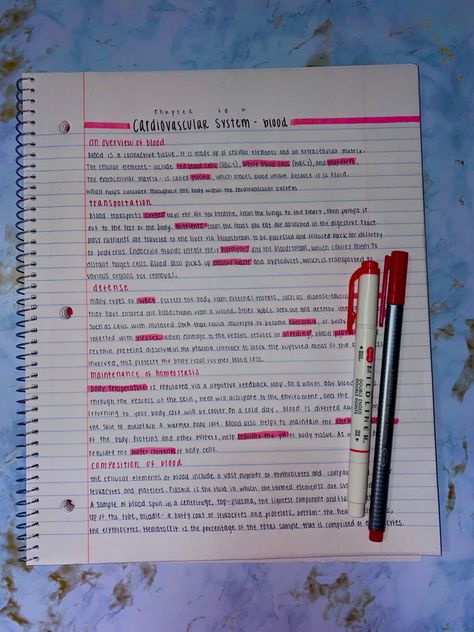 chapter 18
Cardiovascular System - blood
an overview of blood
blood is a connective tissue. it is made up of cellular elements and an extracellular matrix.
The cellular elements - include red blood cells (RBCs), white blood cells (WBCs), and platelets.
The extracellular matrix - is called plasma, which makes blood unique because it is fluid.
which helps circulate throughout the body within the cardiovascular system
transportation
blood transports oxygen from the air you breathe, from the lungs to the heart, then pumps it
out to the rest of the body. Nutrients from the foods you eat are absorbed in the digestive tract
most nutrients are traveled to the liver via bloodstream to be processed and released back for delivery
to body cells. Endocrine glands release the hormones into the bloodstream, which carries them to
distant target cells. Blood also picks up cellular waste and byproducts, which is transported to
various organs for removal.
defense
many types of WBCs protect the body from external threats, such as disease-causing
that have entered the bloodstream from a wound. Other WBCs seek out and destroy
such as cells with mutated DNA that could multiply to become cancerous, or body
infected with viruses. when damage to the vessels results in bleeding, blood
certain proteins dissolved in the plasma interact to block the ruptured areas of the
involved, this protects the body from further blood loss.
maintenance of homeostasis
body temperature is regulated via a negative feedback loop. On a warm day, blood
through the vessels of the skin, heat will dissipate to the environment, and the
returning to your body core will be cooler. On a cold day, blood is diverted away
the skin to maintain a warmer body core. Blood also helps to maintain the
of the body. Proteins and other buffers, help regulate the pH of body tissue. As
regulate the water contents of body cells.
composition of blood
the cellular elements of blood include a vast number of erythrocytes and
leukocytes and platelets. Plasma is the fluid in which the formed elements are
A sample of blood spun in a centrifuge, top - plasma, the lightest component and
top of the tube, middle - a buffy coat of leukocytes and platelets, bottom - the
the erythrocytes. Hematocrit is the percentage of the total sample that is comprised of erythrocytes.
MILDLINER